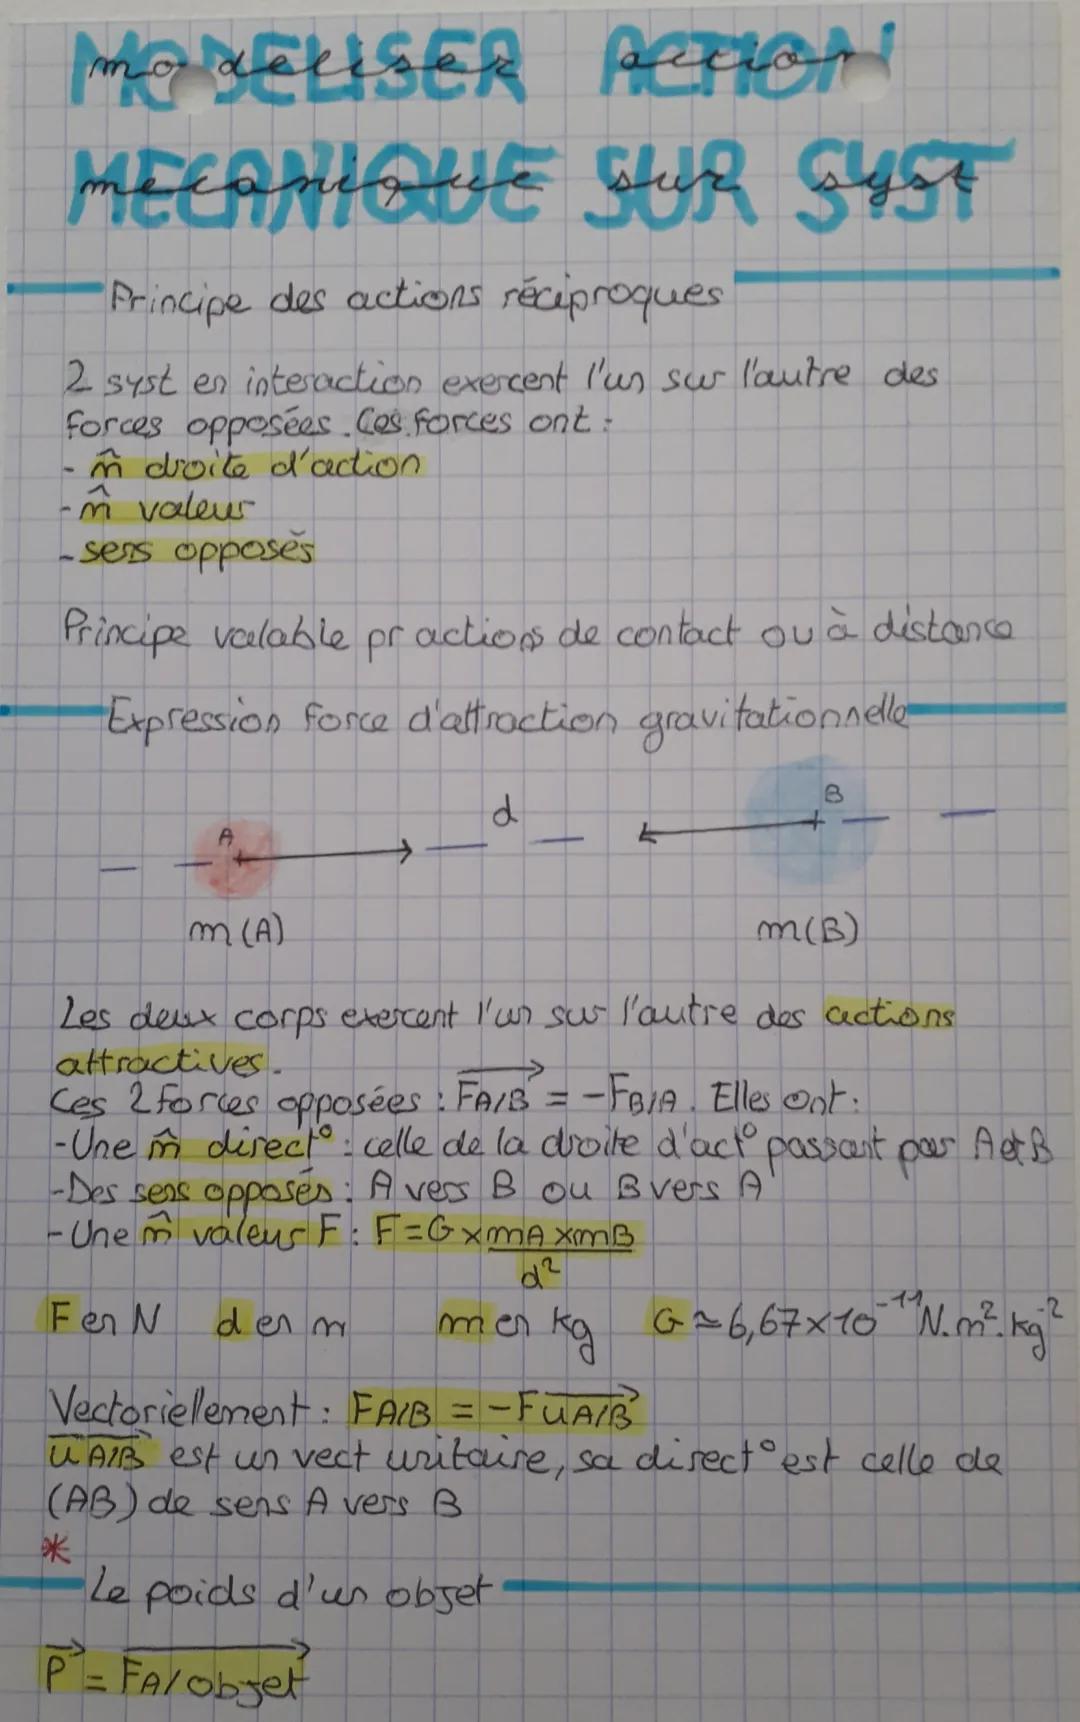 MODELISER ACTION
modeliser action
MECANIQUE SUR SYST
mecanique sur syst
Principe des actions réciproques
2 syst en interaction exercent l'un sur l'autre des
forces opposées. Ces forces ont :
- m̂ droite d'action
- m̂ valeur
- sens opposés
Principe valable pr actions de contact ou à distance
Expression force d'attraction gravitationnelle
A d B
m(A) m(B)
Les deux corps exercent l'un sur l'autre des actions
attractives.
Ces 2 forces opposées : FA/B = -FB/A. Elles ont :
- Une m̂ direct° : celle de la droite d'act° passant par A et B
- Des sens opposés : A vers B ou B vers A
- Une m̂ valeur F : F = G x mA x mB
d²
F en N d en m m en kg G ≃ 6,67 x 10⁻¹¹ N.m².kg⁻²
Vectoriellement : FA/B = -F uA/B
uA/B est un vect unitaire, sa direct° est celle de
(AB) de sens A vers B
*
Le poids d'un objet
P = FA/objet